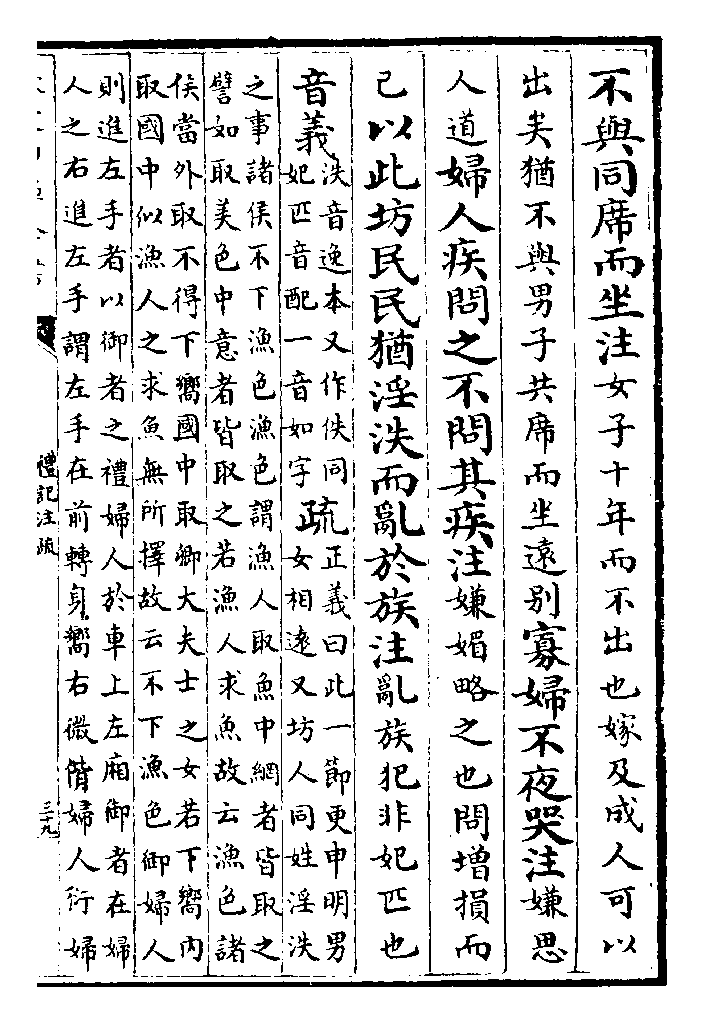 不與同席而坐注女子十年而不出也嫁及成人可以
出矣猶不與男子共席而坐遠別寡婦不夜哭注嫌思
人道婦人疾問之不問其疾注嫌媚略之也問增損而
已以此坊民民猶淫泆而亂於族注亂族犯非妃匹也
音義
泆音逸本又作佚同
妃匹音配一音如字
疏
正義曰此一節更申明男
女相遠又坊人同姓淫泆
之事諸侯不下漁色漁色謂漁人取魚中網者皆取之
譬如取美色中意者皆取之若漁人求魚故云漁色諸
侯當外取不得下嚮國中取卿大夫士之女若下嚮内
取國中似漁人之求魚無所擇故云不下漁色御婦人
則進左手者以御者之禮婦人於車上左廂御者在婦
人之右進左手謂左手在前轉身嚮右微偝婦人衍婦
禮記注疏
三十九